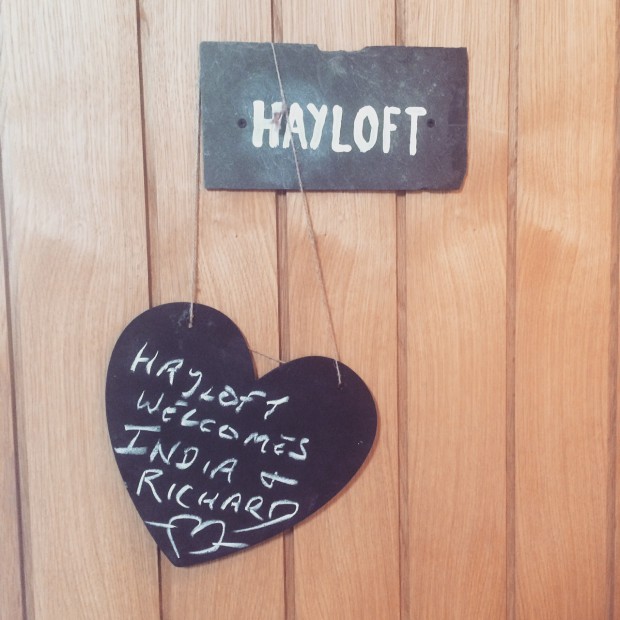 HAYLOFT
HAYLOFT
WELCOMES
INDIA &
RICHARD